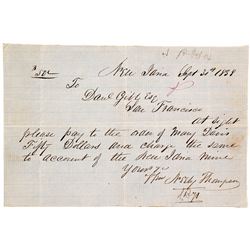 $50 New Idria Sept 30th 1858
To
Danl Gibb Esq
San Francisco
At sight
please pay to the order of Many Davis
Fifty Dollars and charge the same
to account of the New Idria Mine
Yours &c
Thompson